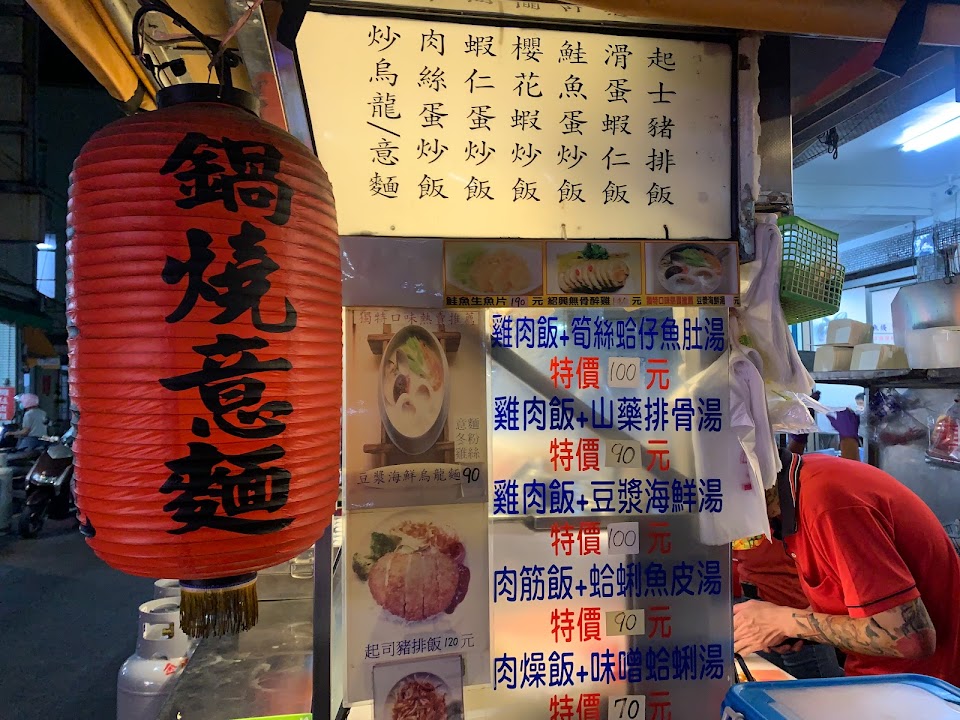 鍋燒意麵
起士豬排飯
滑蛋蝦仁飯
鮭魚蛋炒飯
櫻花蝦炒飯
蝦仁蛋炒飯
肉絲蛋炒飯
炒烏龍/意麵
鮭魚生魚片 190 元
紹興無骨醉雞 元
豆漿海鮮湯 元
獨特口味熱賣推薦
意麵
冬粉
雞絲
豆漿海鮮烏龍麵90
起司豬排飯120元
雞肉飯+筍絲蛤仔魚肚湯
特價100元
雞肉飯+山藥排骨湯
特價90元
雞肉飯+豆漿海鮮湯
特價100元
肉筋飯+蛤蜊魚皮湯
特價90元
肉燥飯+味噌蛤蜊湯
特價70元